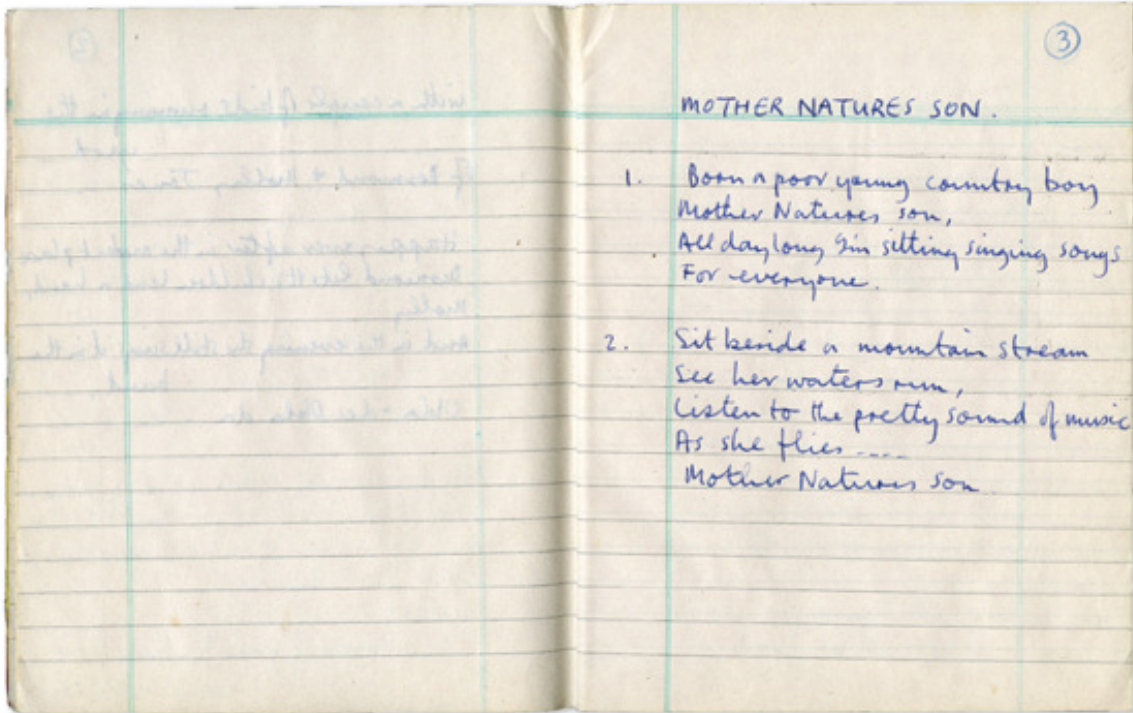 3
MOTHER NATURES SON.
1. Born a poor young country boy
Mother Natures son,
All day long I'm sitting singing songs
For everyone.
2. Sit beside a mountain stream
See her waters run,
Listen to the pretty sound of music
As she flies ....
Mother Natures son